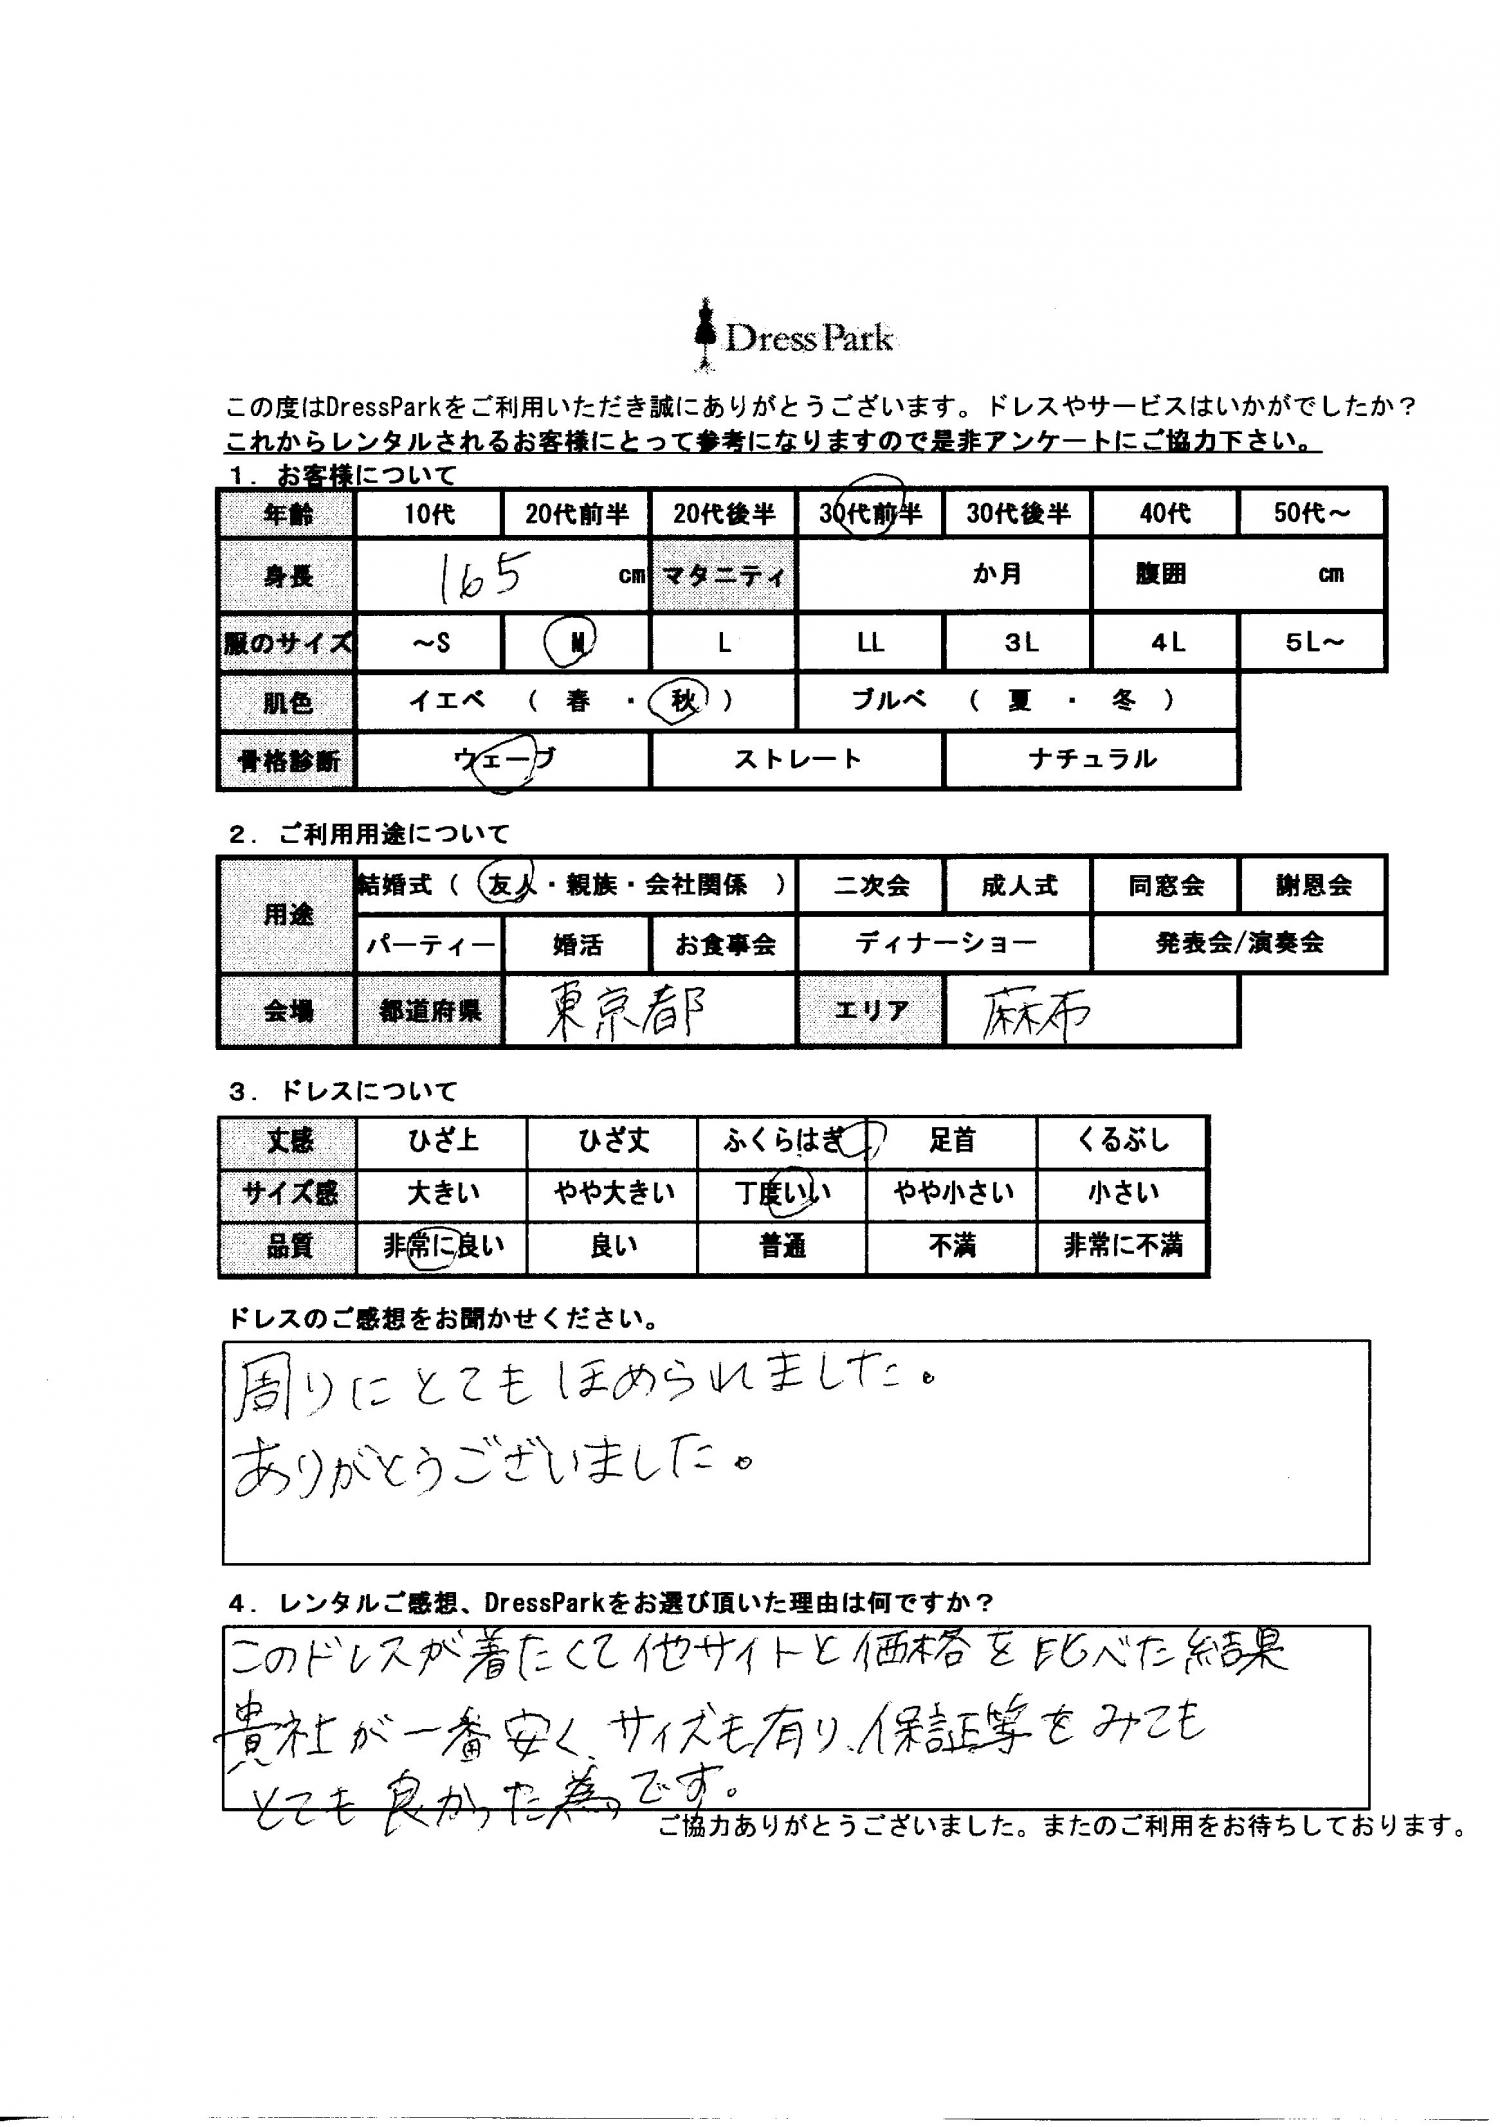 Dress Park
この度はDressParkをご利用いただき誠にありがとうございます。ドレスやサービスはいかがでしたか？
これからレンタルされるお客様にとって参考になりますので是非アンケートにご協力下さい。
１．お客様について
年齢 10代 20代前半 20代後半 30代前半 30代後半 40代 50代～
身長 165 cm マタニティ か月 腹囲 cm
服のサイズ ～S M L LL 3L 4L 5L～
肌色 イエベ （ 春 ・ 秋 ） ブルベ （ 夏 ・ 冬 ）
骨格診断 ウェーブ ストレート ナチュラル
２．ご利用用途について
用途 結婚式（ 友人・親族・会社関係 ） 二次会 成人式 同窓会 謝恩会
パーティー 婚活 お食事会 ディナーショー 発表会/演奏会
会場 都道府県 東京都 エリア 麻布
３．ドレスについて
丈感 ひざ上 ひざ丈 ふくらはぎ 足首 くるぶし
サイズ感 大きい やや大きい 丁度いい やや小さい 小さい
品質 非常に良い 良い 普通 不満 非常に不満
ドレスのご感想をお聞かせください。
周りにとてもほめられました。
ありがとうございました。
４．レンタルご感想、DressParkをお選び頂いた理由は何ですか？
このドレスが着たくて他サイトと価格を比べた結果
貴社が一番安く、サイズも有り、保証等をみても
とても良かった為です。
ご協力ありがとうございました。またのご利用をお待ちしております。